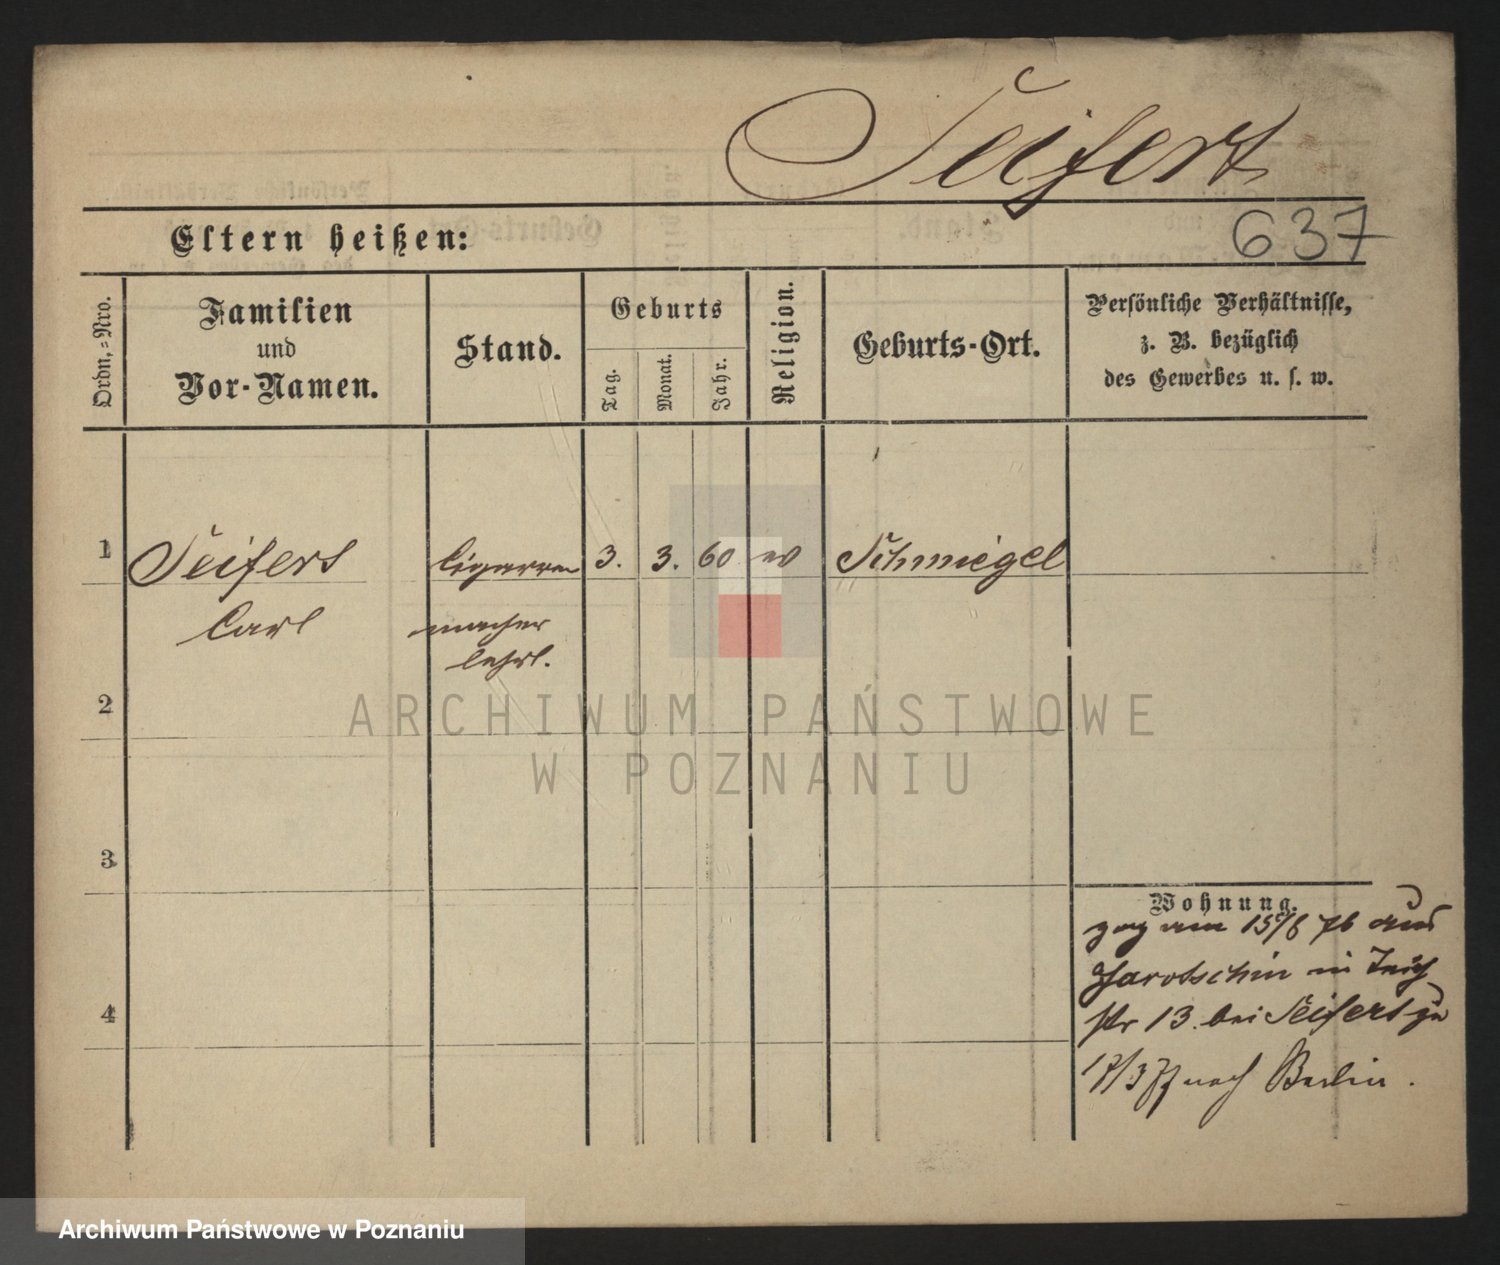 Seifert
637
Eltern heißen:
Ordn.-Nro.
Familien
und
Vor-Namen.
Stand.
Geburts
Tag.
Monat.
Jahr.
Religion.
Geburts-Ort.
Persönliche Verhältnisse,
z. B. bezüglich
des Gewerbes u. s. w.
1
Seifert
Carl
Cigarren
macher
lehrl.
3.
3.
60
ev
Schmiegel
2
3
4
Wohnung.
zog am 15/8 76 aus
Jarotschin in
str 13. bei Seifert zu
17/3 77 nach Berlin.
ARCHIWUM PAŃSTWOWE
W POZNANIU
Archiwum Państwowe w Poznaniu